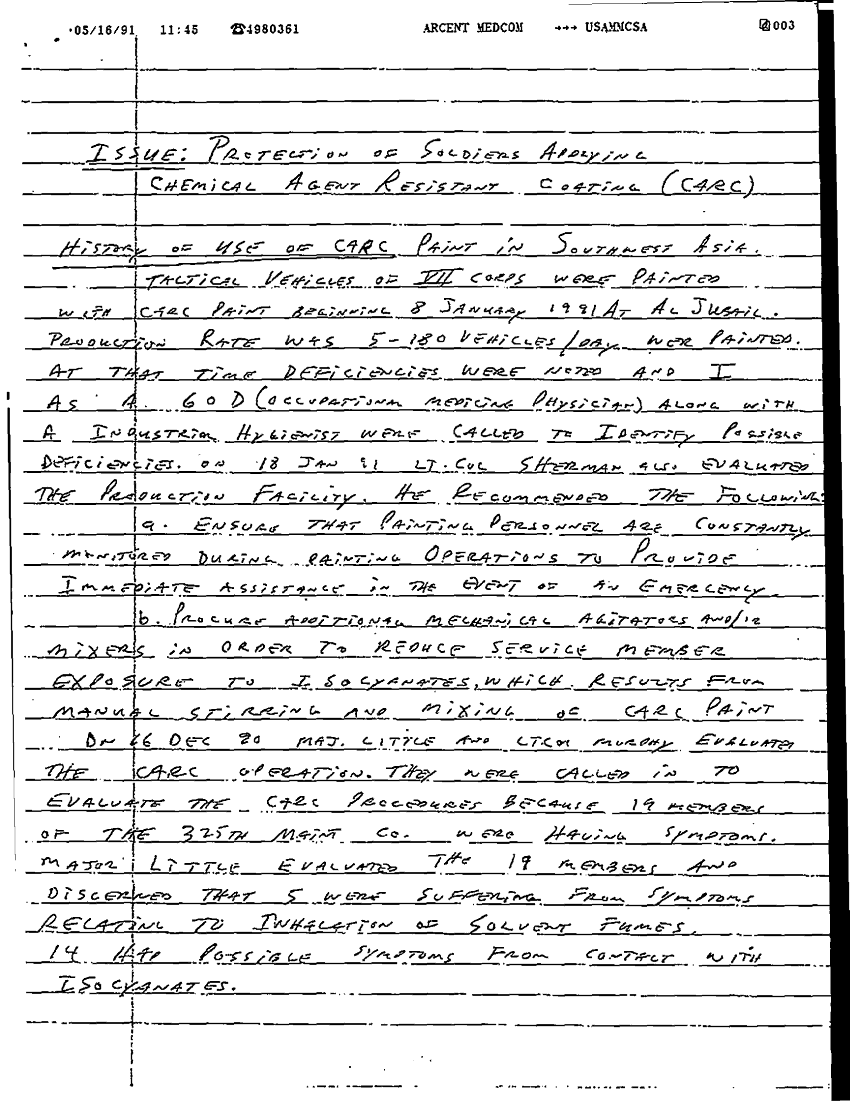 05/16/91 11:45 ☎4980361 ARCENT MEDCOM →→→ USAMMCSA 003
ISSUE: PROTECTION OF SOLDIERS APPLYING
CHEMICAL AGENT RESISTANT COATING (CARC)
HISTORY OF USE OF CARC PAINT IN SOUTHWEST ASIA.
TACTICAL VEHICLES OF VII CORPS WERE PAINTED
WITH CARC PAINT BEGINNING 8 JANUARY 1991 AT AL JUBAIL.
PRODUCTION RATE WAS 5-180 VEHICLES/DAY WER PAINTED.
AT THAT TIME DEFICIENCIES WERE NOTED AND I
AS A 60D (OCCUPATIONAL MEDICINE PHYSICIAN) ALONG WITH
A INDUSTRIAL HYGIENIST WERE CALLED TO IDENTIFY POSSIBLE
DEFICIENCIES. ON 18 JAN 91 LT. COL SHERMAN ALSO EVALUATED
THE PRODUCTION FACILITY. HE RECOMMENDED THE FOLLOWING:
a. ENSURE THAT PAINTING PERSONNEL ARE CONSTANTLY
MONITORED DURING PAINTING OPERATIONS TO PROVIDE
IMMEDIATE ASSISTANCE IN THE EVENT OF AN EMERGENCY
b. PROCURE ADDITIONAL MECHANICAL AGITATORS AND/OR
MIXERS IN ORDER TO REDUCE SERVICE MEMBER
EXPOSURE TO ISOCYANATES, WHICH RESULTS FROM
MANUAL STIRRING AND MIXING OF CARC PAINT
ON 26 DEC 90 MAJ. LITTLE AND LTCOL MURPHY EVALUATED
THE CARC OPERATION. THEY WERE CALLED IN TO
EVALUATE THE CARC PROCEDURES BECAUSE 19 MEMBERS
OF THE 325TH MAINT CO. WERE HAVING SYMPTOMS.
MAJOR LITTLE EVALUATED THE 19 MEMBERS AND
DISCERNED THAT 5 WERE SUFFERING FROM SYMPTOMS
RELATING TO INHALATION OF SOLVENT FUMES.
14 HAD POSSIBLE SYMPTOMS FROM CONTACT WITH
ISOCYANATES.